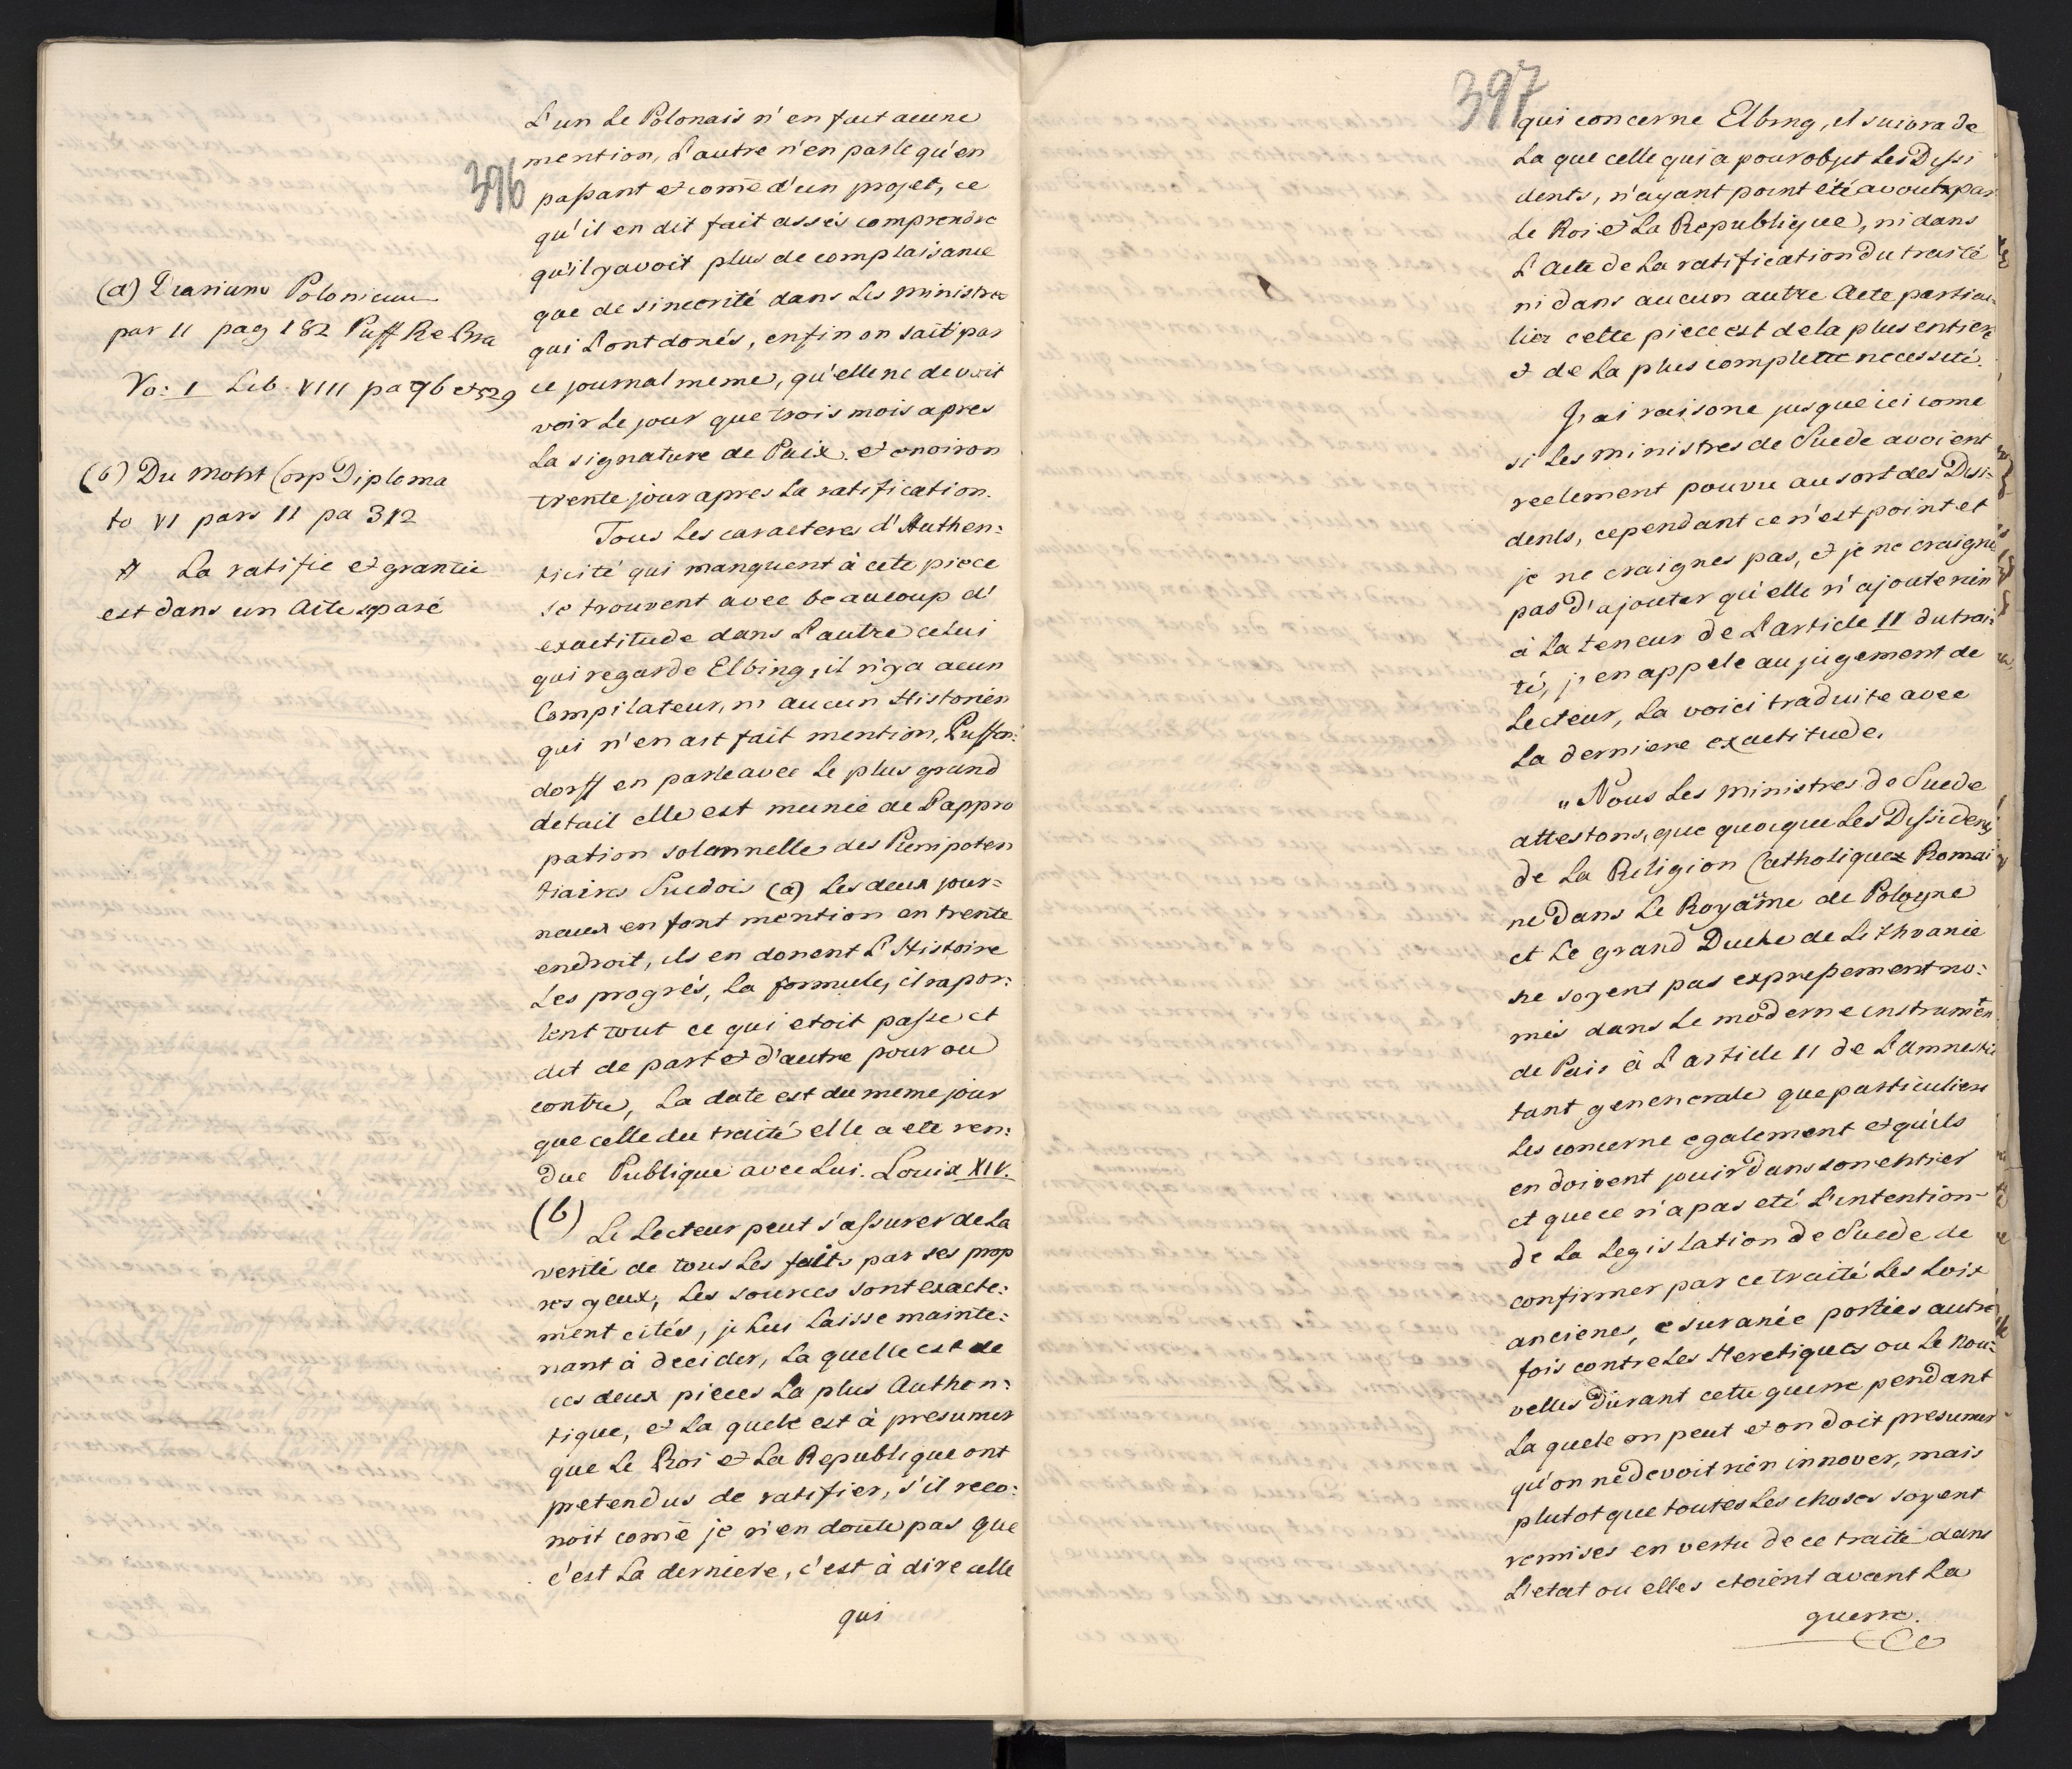 396
L'un Le Polonais n'en fait aucune
mention, L'autre n'en parle qu'en
passant et come d'un projet, ce
qu'il en dit fait assés comprendre
qu'il y avoit plus de complaisance
que de sincerité dans Les ministre
qui L'ont donés, enfin on sait par
ce journal meme, qu'elle ne devoit
voir Le jour que trois mois apres
La signature de Paix, et environ
trente jour apres La ratification.
Tous Les caracteres d'Authen:
ticité qui manquent à cete piece
se trouvent avec beaucoup d'
exactitude dans L'autre celui
qui regarde Elbing, il n'y a acun
Compilateur, ni aucun Historien
qui n'en ait fait mention, Puffen:
dorff en parle avec Le plus grand
detail elle est munie de L'appro
pation solennelle des Plenipoten
tiaires Suedois (a) Les deux jour=
neaux en font mention en trente
endroit, ils en donent L'Histoire
Les progrés, La formule, il rapor:
tent tout ce qui etoit passe et
dit de part et d'autre pour ou
contre, La date est du meme jour
que celle du traité elle a ete ren:
due Publique avec Lui. Louis XIV.
(b)
Le Lecteur peut s'assurer de La
verité de tous Les faits par ses prop
res yeux, Les sources sont exacte:
ment cités, je Lui Laisse mainte:
nant à decider, La quelle est de
ces deux pieces La plus Authen:
tique, et La quele est à presumer
que Le Roi et La Republique ont
pretendus de ratifier, s'il reco:
noit come je n'en doute pas que
c'est La derniere, c'est à dire celle
qui
(a) Erarium Polonicum
par II pag 182 Puff Re Bra
Vo: I Lib. VIII pa 96 et 529
(b) Du Mont Corp Diploma
to VI pars II pa 312
# La ratifie et grantie
est dans un Acte separé
397
qui concerne Elbing, il suivra de
La que celle qui a pour objet Les Dissi
dents, n'ayant point été avouée par
Le Roi et La Republique, ni dans
L'Acte de La ratification du traité
ni dans aucun autre Acte particu:
lier cette piece est de la plus entiere
et de La plus complette necesseté.
J'ai raisone jusque ici come
si Les ministres de Suede avoient
reelement pouvu au sort des Disi:
dents, cependant ce n'est point et
je ne craignes pas, et je ne craigne
pas d'ajouter qu'elle n'ajoute rien
à La teneur de L'article II du trai:
té, j'en appele au jugement de
Lecteur, La voici traduite avec
La derniere exactitude.
„Nous Les ministres de Suede
attestons, que quoique Les Dissidens
de La Religion Catholique Romai
ne dans Le Royame de Pologne
et Le grand Duché de Lithvanie
ne soyent pas expressement no:
més dans Le moderne instrument
de Paix à L'article II de L'amnestie
tant genencrale que particuliere
Les concerne egalement et qu'ils
en doivent jouir dans son entier
et que ce n'a pas eté L'intention
de La Legislation de Suede de
confirmer par ce traité Les Loix
anciene, e suranée portées autre
fois contre Les Heretiques ou Le Nou:
velles durant cette guerre pendant
La quele on peut et on doit presumer
qu'on ne devoit rien innover, mais
plutot que toutes Les choses soyent
remises en vertu de ce traité dans
L'etat ou elles etoient avant La
guerre.